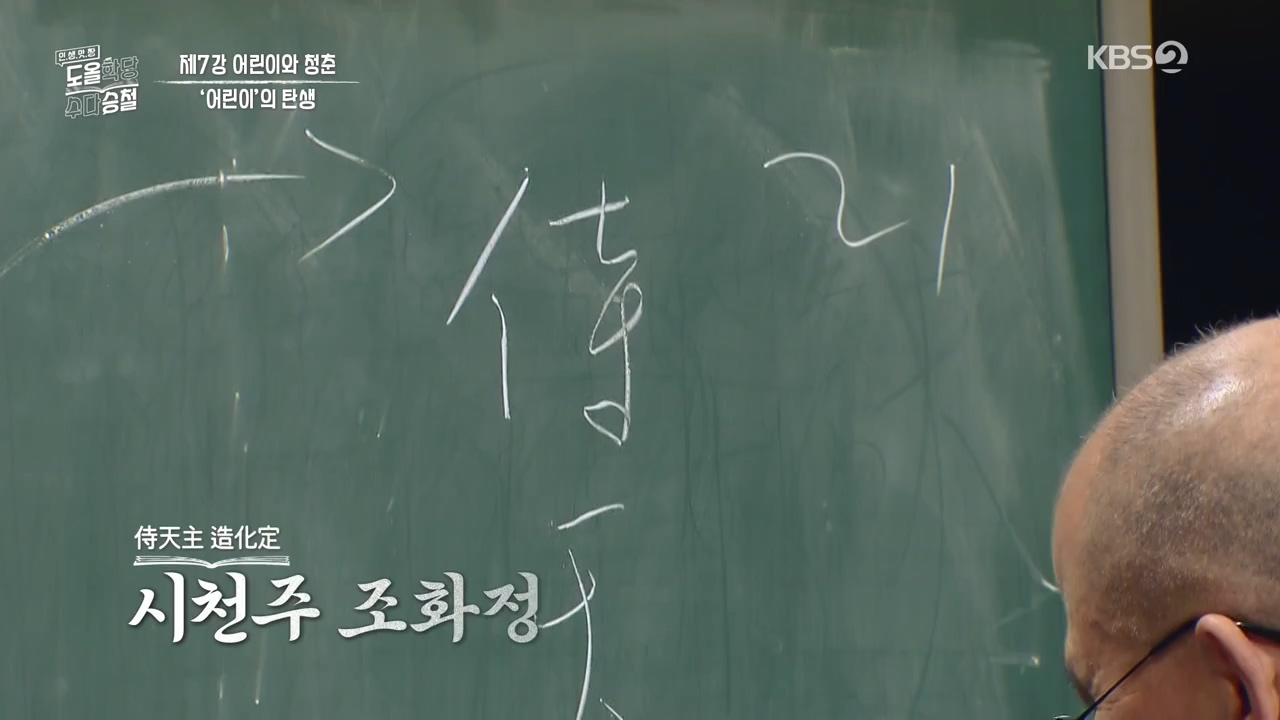 인생맛찡
도올학당
수다승철
제7강 어린이와 청춘
‘어린이’의 탄생
KBS2
侍
리
天
侍天主 造化定
시천주 조화정